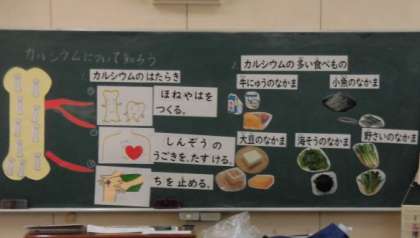 カルシウムについて知ろう
1 カルシウムの はたらき
① ほねやはを
つくる。
② しんぞう の
うごきを、たす ける。
③ ちを 止める。
2 カルシウムの 多い食べもの
牛にゅうのなかま
小魚のなかま
大豆のなかま
海そうのなかま
野さいのなかま